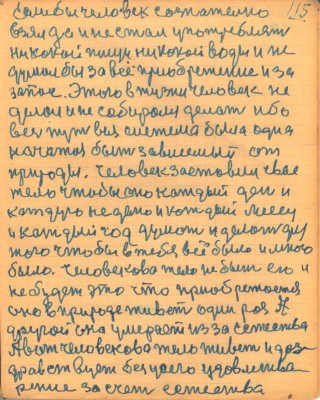 115
если бы человек сознательно
взял да и не стал употреблять
никакой пищи никакой воды и не
думал бы за всё приобретение и за
запас. Этого в жизни человек не
делал и не собирался делать ибо
весь путь вся система была одна
начатая быть зависемый от
природы. Человек заставлял свае
тело чтобы оно каждый день и
каждую неделю и каждый месец
и каждый год думот и делот для
того чтобы в тебя всё было и много
было. Человекова тело не быть его и
не будет это что приобретается
оно в природе живёт один раз А
другой она умерает из за сетества
А вот человекова тело живет и доз-
дравствует без усего удовлетва
рение за счет сетества